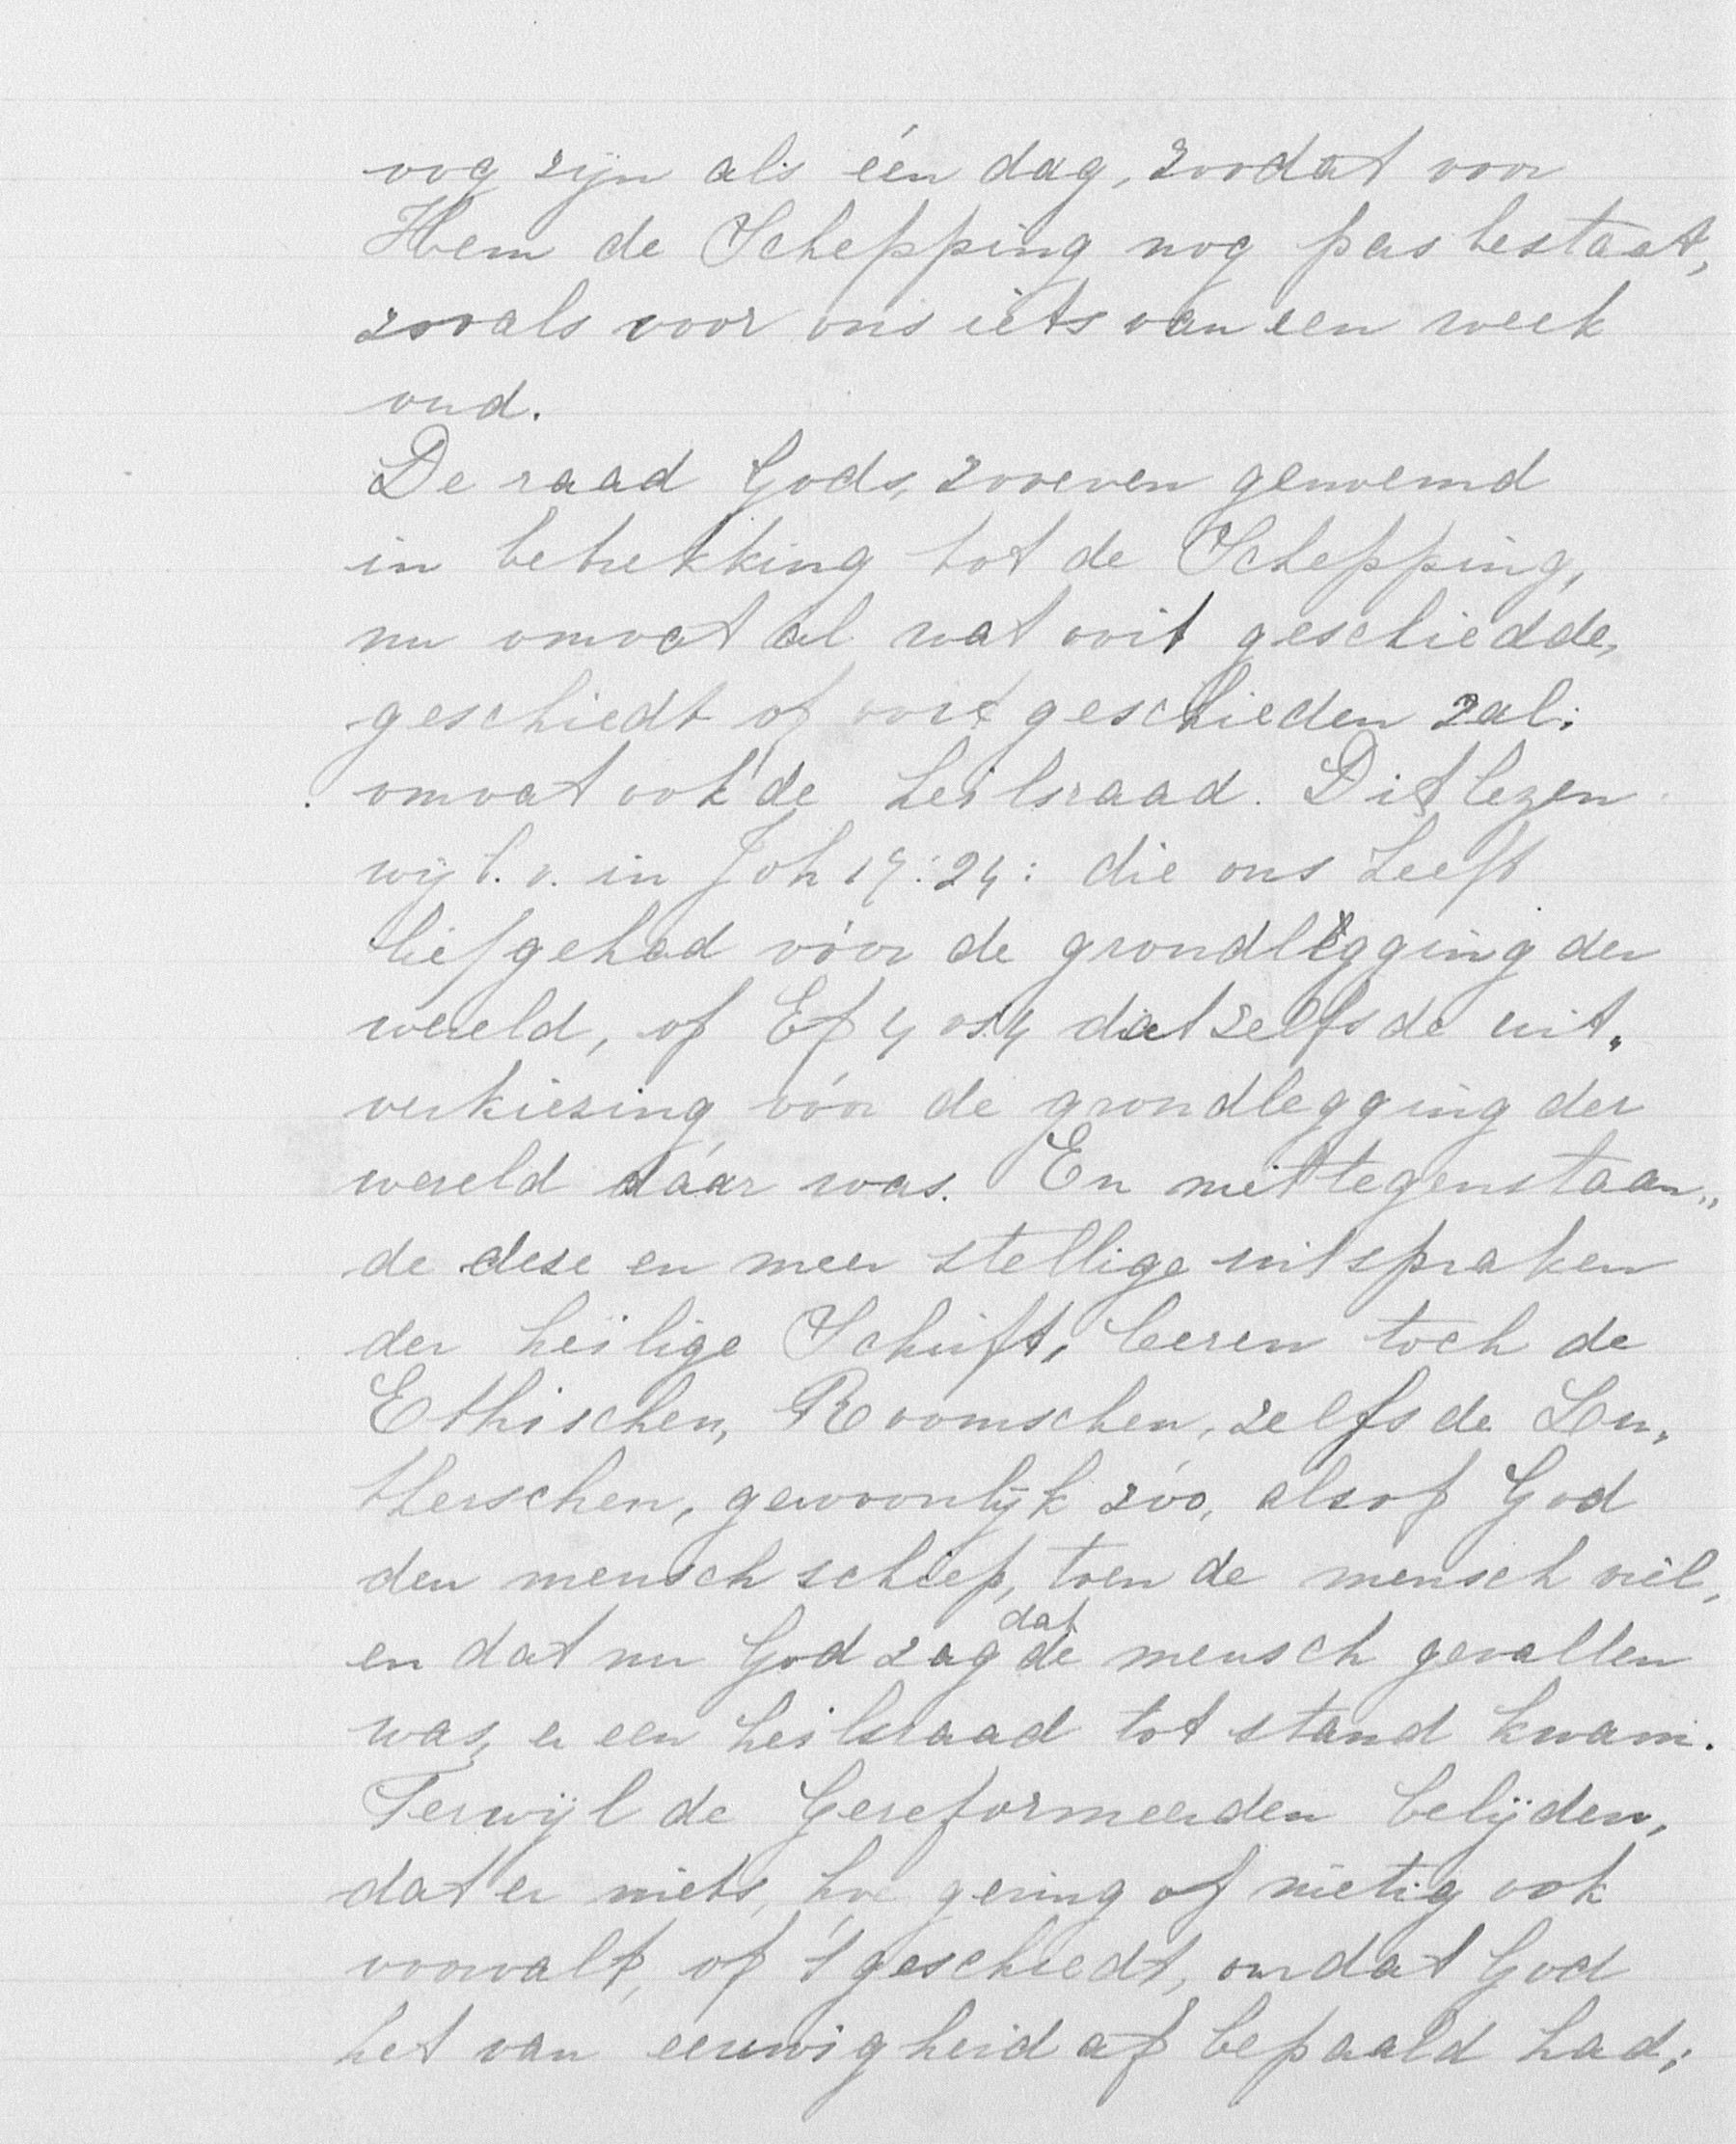 oog zijn als één dag, zoodat voor
Hem de Schepping nog pas bestaat,
zooals voor ons iets van een week
oud.
De raad Gods, zooeven genoemd
in betrekking tot de Schepping,
nu omvat al wat ooit geschiedde,
geschiedt of ooit geschieden zal;
omvat ook de heilsraad. Dit lezen
wij b.v. in Joh 17:24: die ons heeft
liefgehad vóór de grondlegging der
wereld, of Ef 4 vs 4 dat zelfs de uit„
verkiezing vóór de grondlegging der
wereld dáár was. En niettegenstaan„
de deze en meer stellige uitspraken
der heilige Schrift, leeren toch de
Ethischen, Roomschen, zelfs de Lu„
therschen, gewoonlijk zóó, alsof God
den mensch schiep, toen de mensch viel,
en dat nu God zag dat de mensch gevallen
was, er een heilsraad tot stand kwam.
Terwijl de Gereformeerden belijden,
dat er niets, hoe gering of nietig ook
voorvalt, of 't geschiedt, omdat God
het van eeuwigheid af bepaald had;